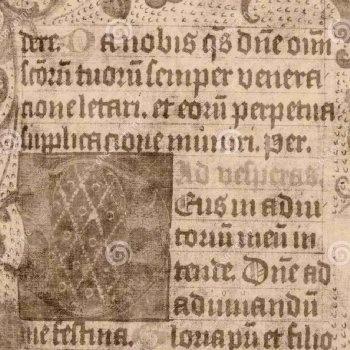 dere. Da nobis q̃s dñe om̃
scõrũ tuorũ semper venera
cione letari. et eorũ perpetua
supplicacione muniri. Per.
Ad vesperas.
Eus in adiu
toriũ meũ in
tende. Dñe ad
adiuvandũ
me festina. Gloria pr̃i et filio